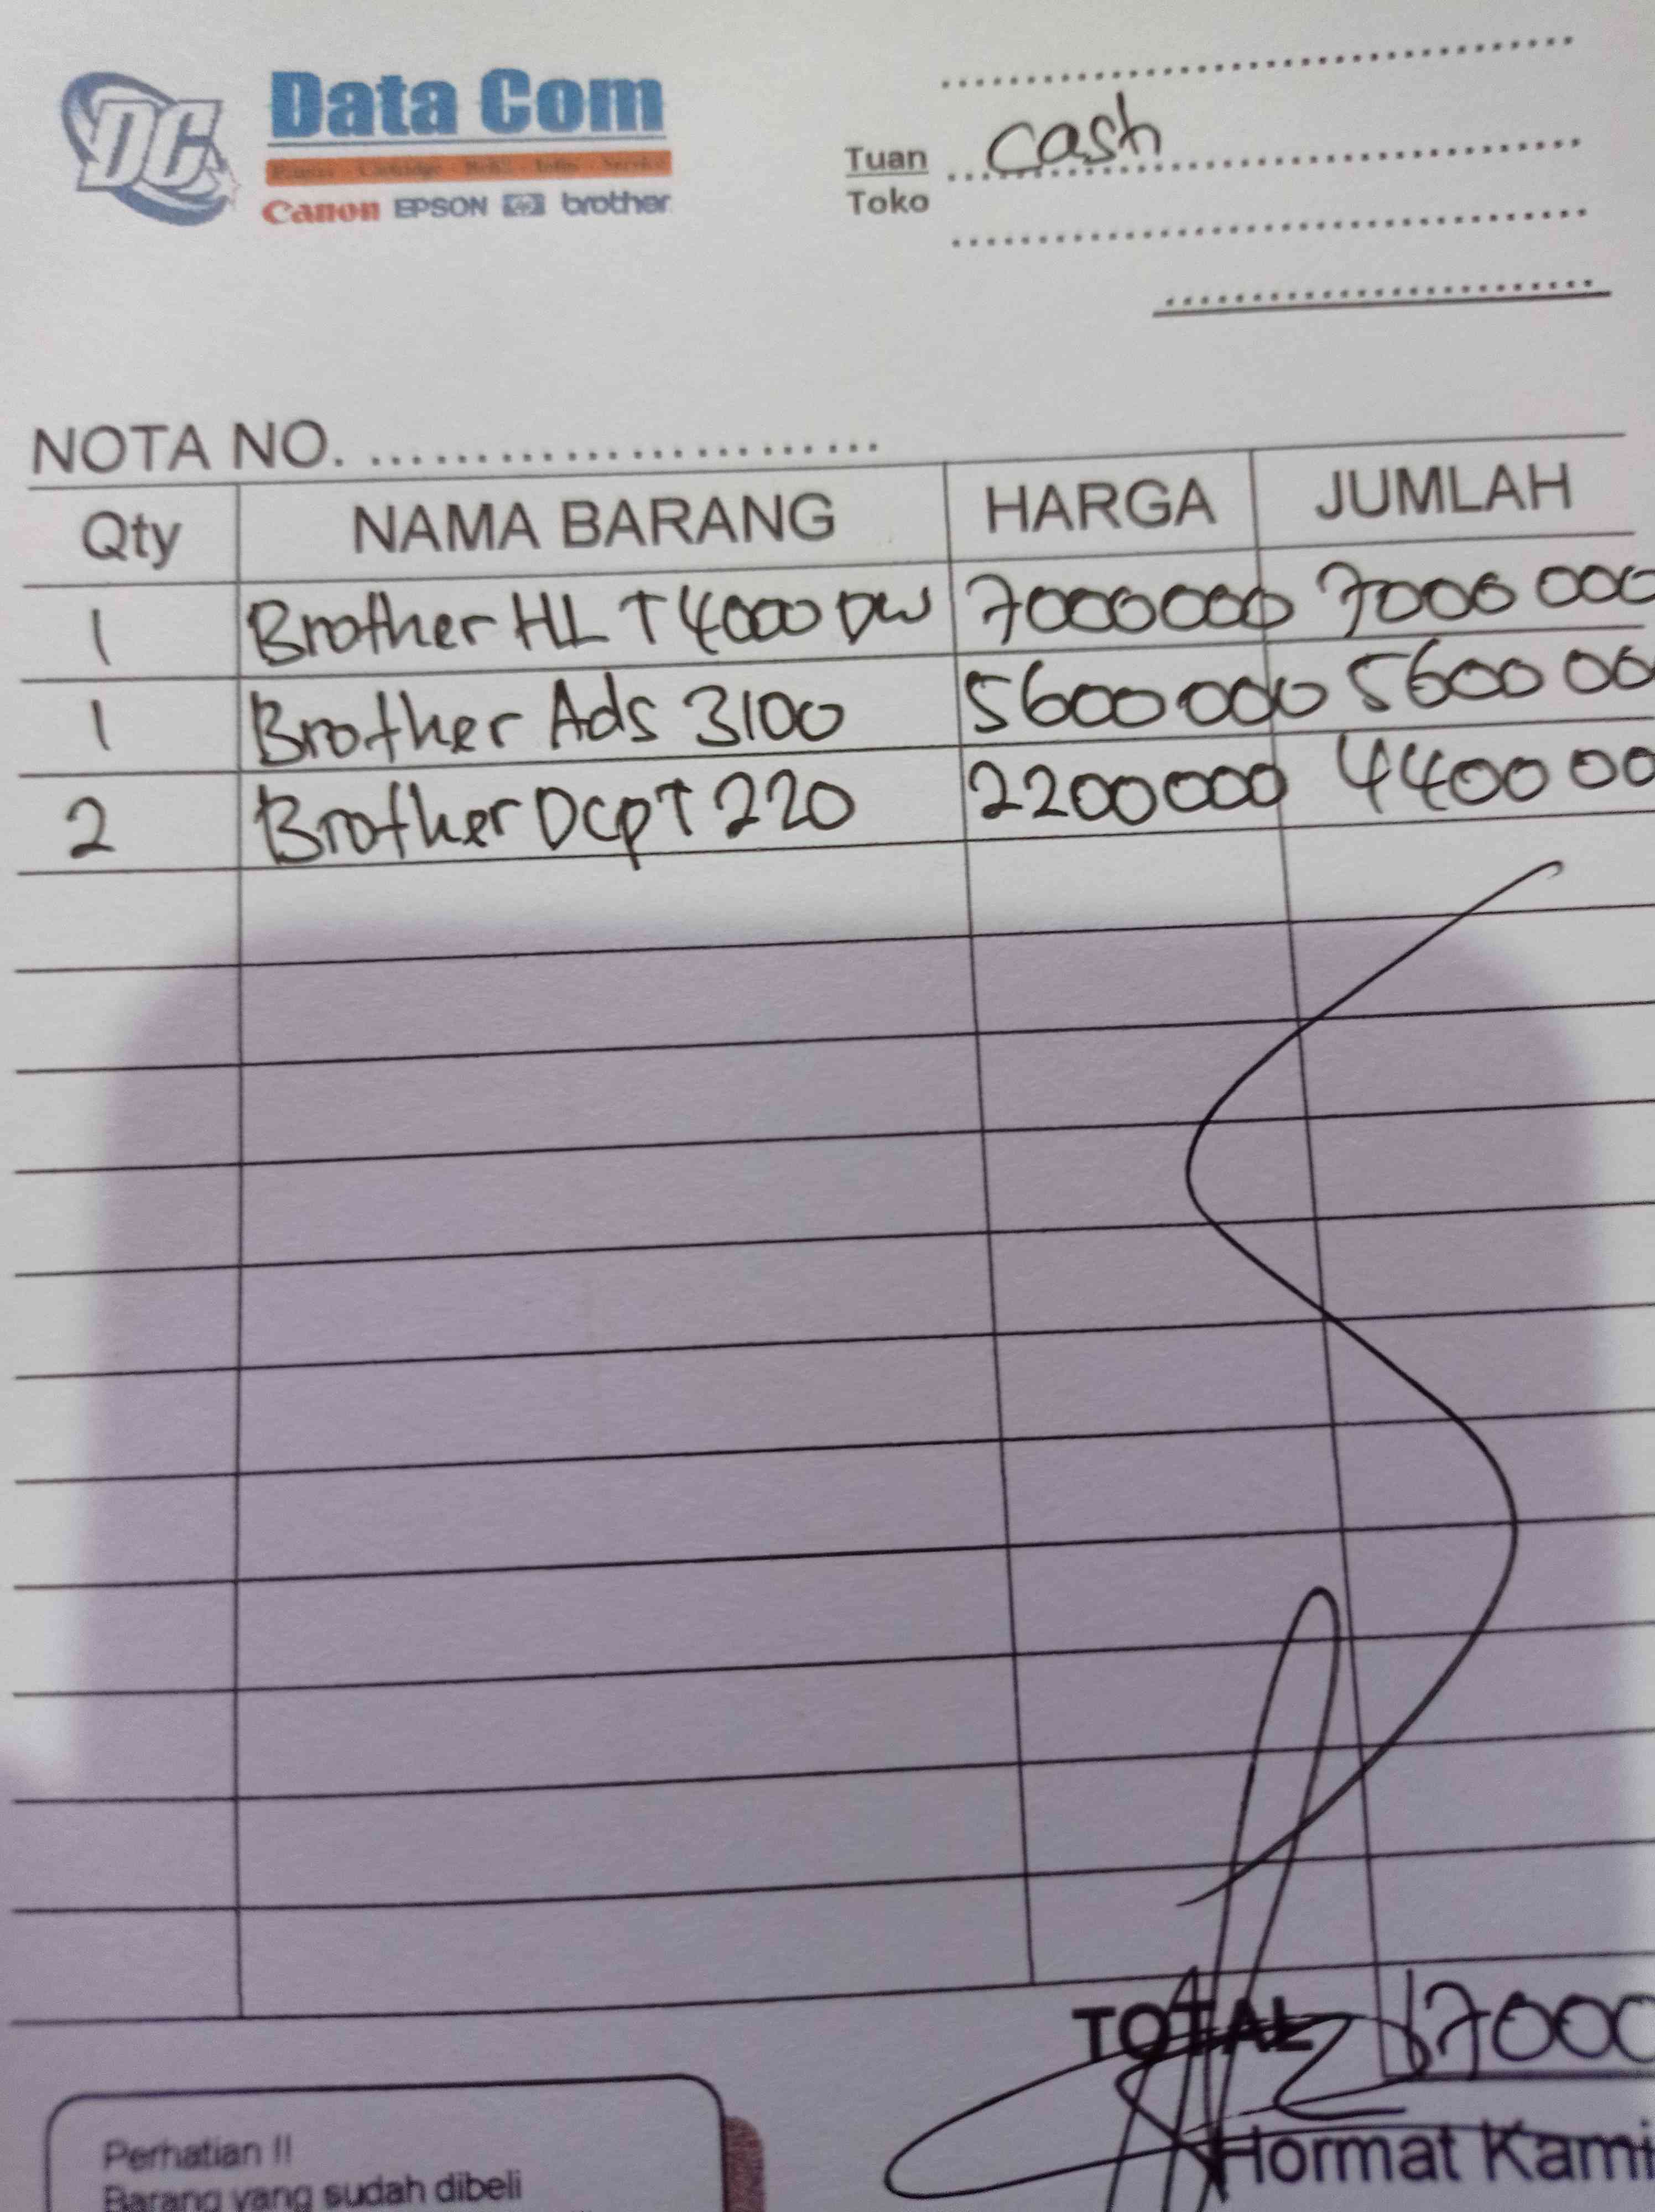 DC Data Com
Printer - Cartridge - Refill - Infus - Service
Canon EPSON hp brother
Tuan cash
Toko
NOTA NO.
Qty NAMA BARANG HARGA JUMLAH
1 Brother HL T4000 DW 7000000 7000 000
1 Brother Ads 3100 5600 000 5600 00
2 Brother Dcp T 220 2200000 4400 00
TOTAL 17000
Hormat Kami
Perhatian !!
Barang yang sudah dibeli